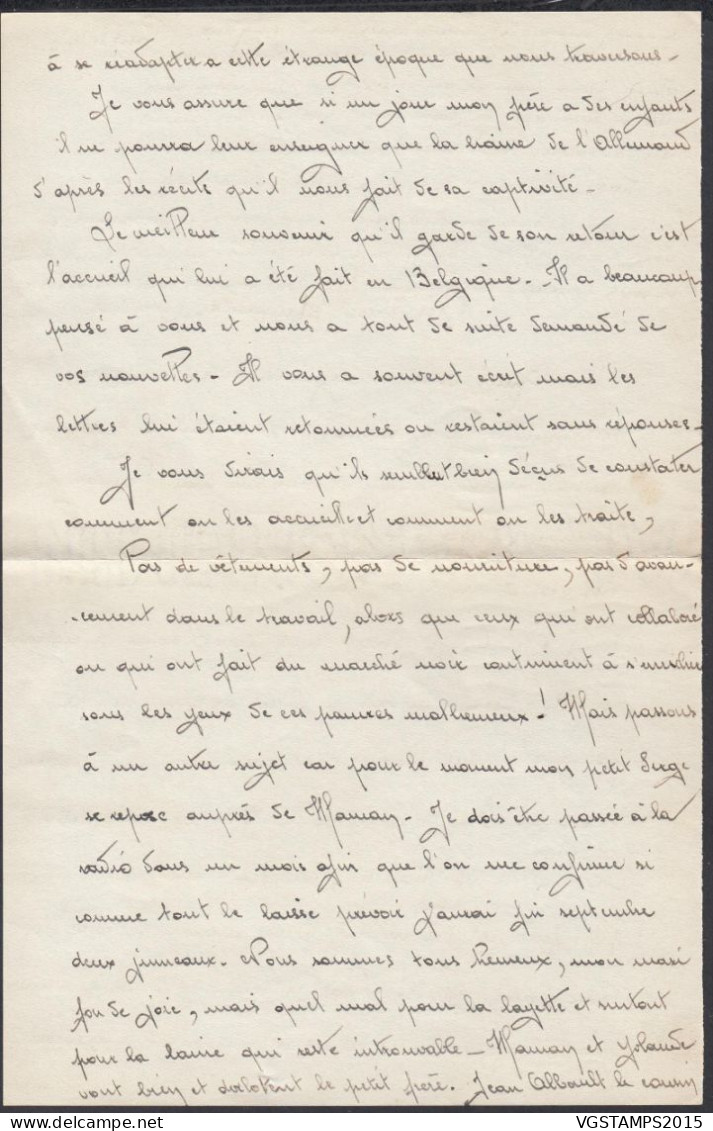 à se réadapter a cette étrange époque que nous traversons -
Je vous assure que si un jour mon père a des enfants
il ne pourra leur enseigner que la haine de l'Allemand
d'après les récits qu'il nous fait de sa captivité -
Le meilleur souvenir qu'il garde de son retour c'est
l'accueil qui lui a été fait en Belgique - Il a beaucoup
pensé à vous et nous a tout de suite demandé de
vos nouvelles - Il vous a souvent écrit mais les
lettres lui étaient retournées ou restaient sans réponses -
Je vous dirais qu'ils semblent bien déçus de constater
comment on les accueille et comment on les traite,
Pas de vêtements, pas de nourriture, pas d'avan-
-cement dans le travail, alors que ceux qui ont collaboré
ou qui ont fait du marché noir continuent à s'enrichir
sous les yeux de ces pauvres malheureux! Mais passons
à un autre sujet car pour le moment mon petit Serge
se repose auprès de Maman - Je dois être passée à la
radio dans un mois afin que l'on me confirme si
comme tout le laisse prévoir j'aurai fin septembre
deux jumeaux - Nous sommes tous heureux, mon mari
fou de joie, mais quel mal pour la layette et surtout
pour la laine qui reste introuvable - Maman et Yolande
vont bien et dorlotent le petit frère. Jean le cousin
VGSTAMPS2015